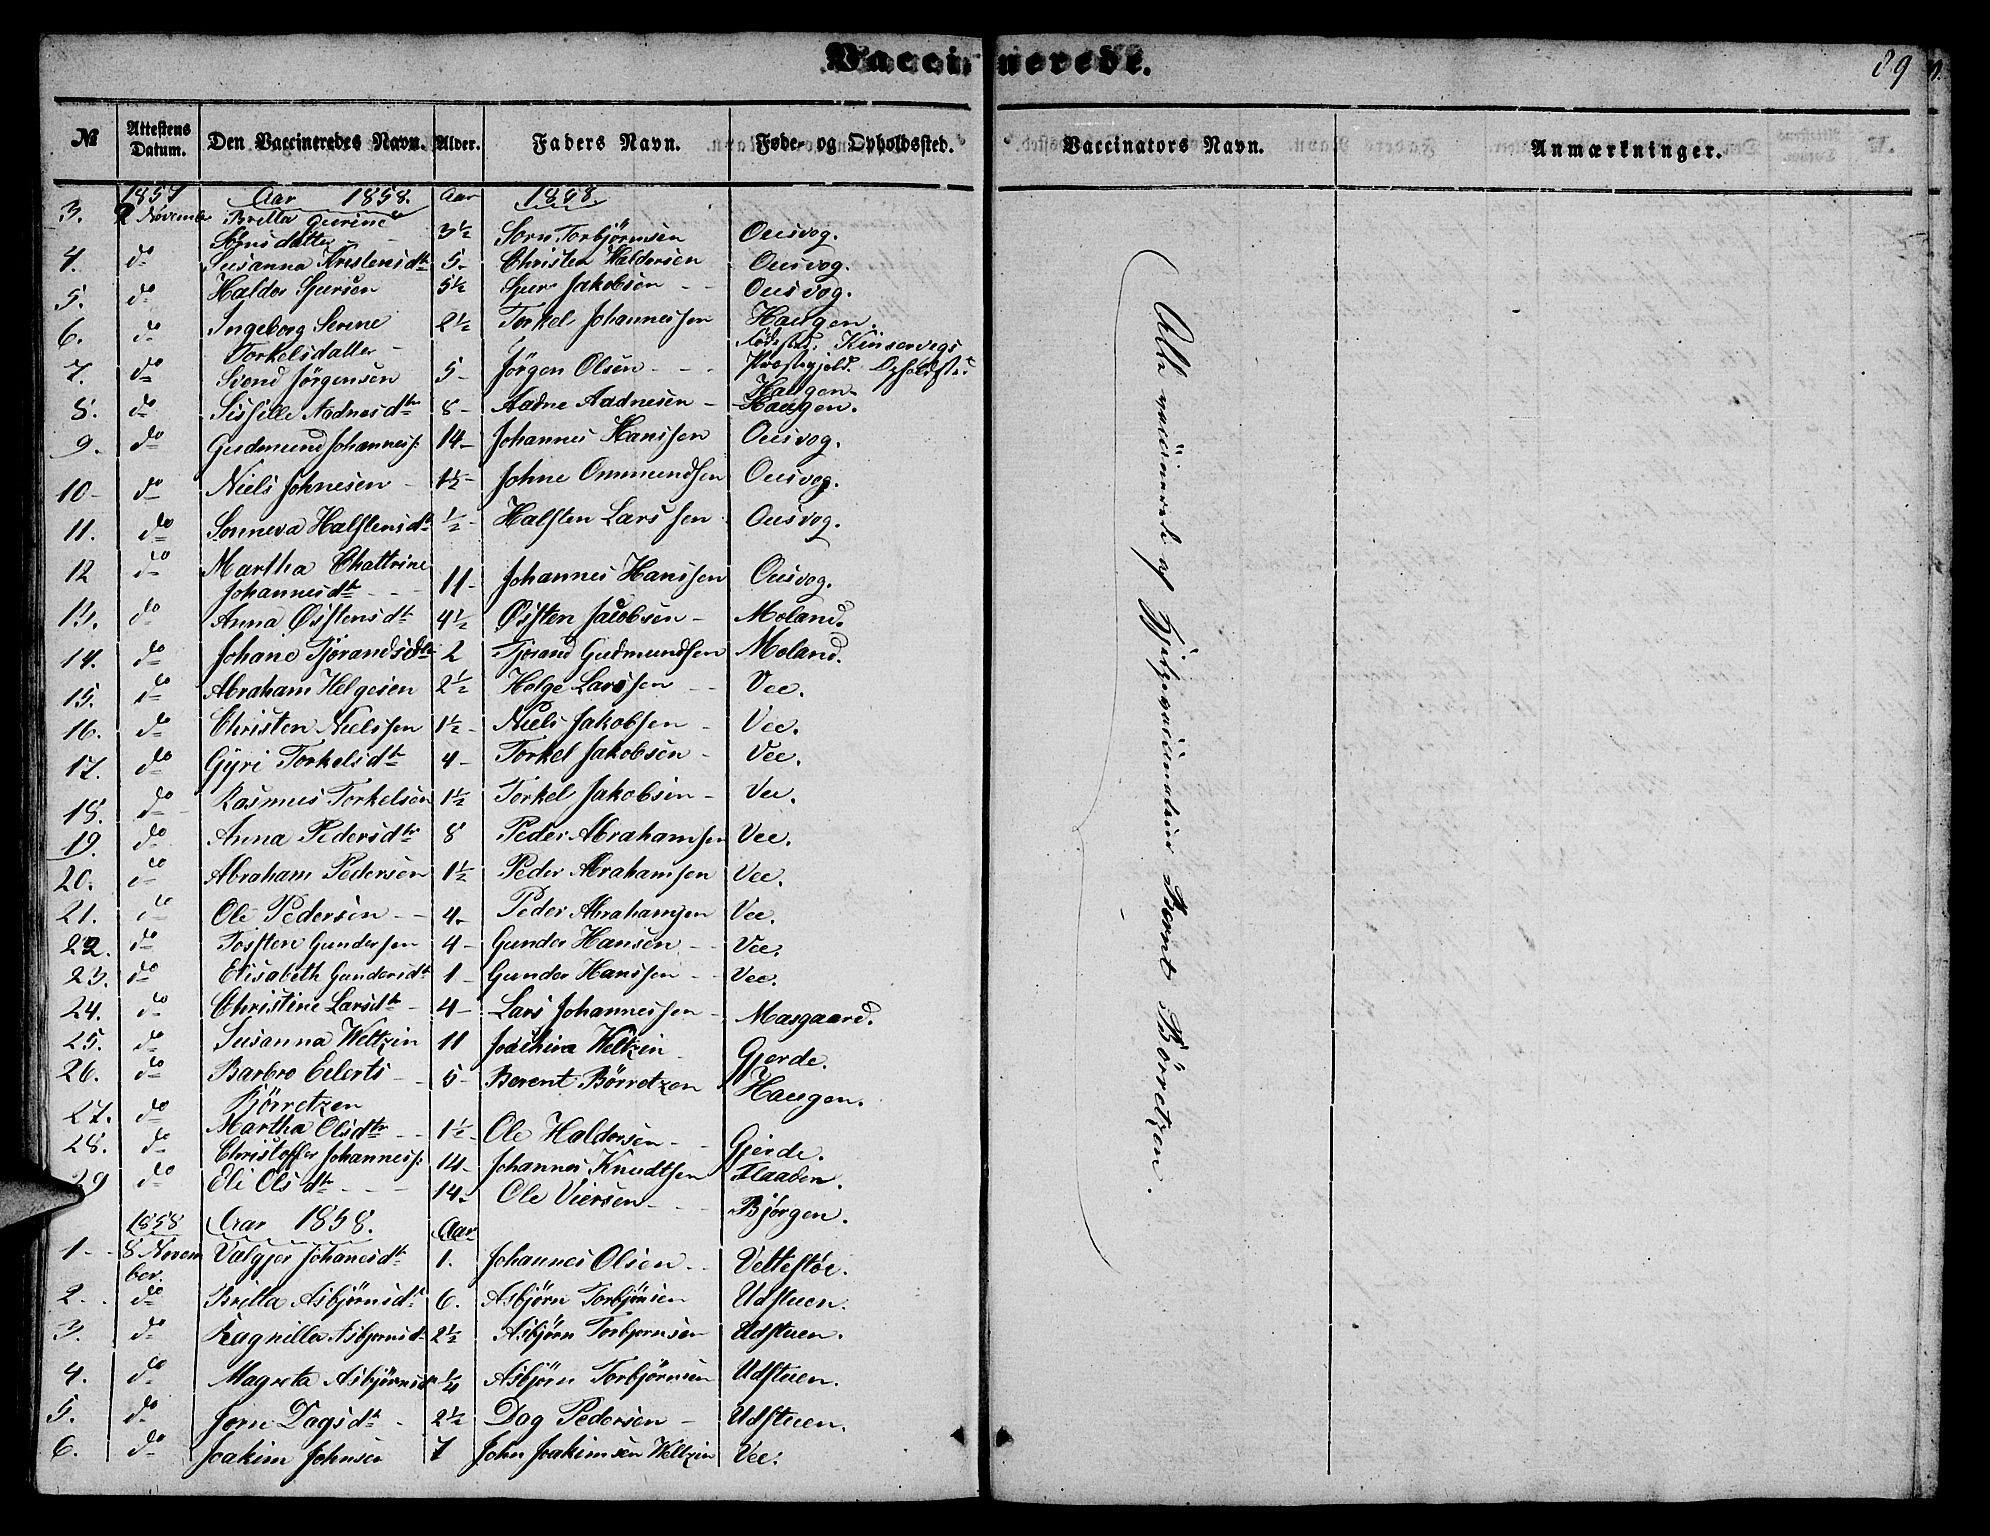 Vaccinerede.
89
№ Attestens Datum. Den Vaccineredes Navn. Alder. Faders Navn. Føde- og Opholdssted. Vaccinators Navn. Anmærkninger.
1857 Aar 1858. Aar 1858.
3. 2 Novemb Brella Gurine
Sørnsdatter 3½ Sørn Torbjørnsen Ousvog.
4. do Susanna Kristensdtr 5- Christen Haldorsen Ousvog.
5. do Haldor Sjursen 5½ Sjur Jakobsen Ousvog.
6. do Ingeborg Serine
Torkelsdatter 2½ Torkel Johannessen Haugen.
7. do Svend Jørgensen 5- Jörgen Olsen Fødested: Kinservigs
Præstegjeld. Opholdsted
Haugen
8. do Sissille Aadnesdtr 8- Aadne Aadnesen Haugen.
9. do Gudmund Johanness: 14- Johannes Hanssen Ousvog.
10- do Niels Johnesen 1½- Johne Ommundsen Ousvog.
11. do Sonneva Halstensdtr ½- Halsten Larssen Ousvog.
12 do Martha Chattrine
Johannesdtr 11- Johannes Hanssen Ousvog.
13. do Anna Østensdtr 4½ Østen Jacobsen Moland.
14. do Johane Tjørandsdtr 2 Tjørand Gudmundsen Moland.
15. do Abraham Helgesen 2½ Helge Larssen Vee.
16. do Christen Nielssen 1½- Niels Jakobsen Vee.
17. do Gyri Torkelsdtr 4- Torkel Jakobsen Vee.
18. do Rasmus Torkelsen 1½ Torkel Jakobsen Vee.
19. do Anna Pedersdtr 8 Peder Abrahamsen Vee.
20. do Abraham Pedersen 1½ Peder Abrahamsen Vee.
21. do Ole Pedersen 4- Peder Abrahamsen Vee.
22. do Tosten Gundersen 4- Gunder Hansen Vee.
23. do Elisabeth Gundersdtr 1- Gunder Hanssen Vee.
24. do Christine Larsdtr 4- Lars Johannessen Masgaard.
25. do Susanna Weltzin 11 Joachim Weltzin Gjerde.
26. do Barbro Eilerts
Börretzen 5- Berent Börretzen Haugen.
27. do Martha Olsdtr 1½- Ole Haldorsen Gjerde.
28. do Christoffer Johanness: 14- Johannes Knudtsen Flaaden.
29 do Eli Olsdtr 14- Ole Viersen Bjørgen.
1858 Aar 1858. Aar
1- 8 November. Valgjer Johanesdtr 1. Johannes Olsen Vettestøe.
2. do Brella Asbjørnsdtr 6. Asbjørn Torbjørnsen Udstuen.
3. do Ragnilla Asbjørnsd 2½ Asbjørn Torbjørnsen Udstuen.
4. do Magreta Asbjørnsdr ¼ Asbjørn Torbjørnsen Udstuen.
5. do Jørn Dagsdtr 2½ Dag Pedersen Udstuen.
6. do Joakim Johnsen 7 John Joakimsen Weltzin Vee.
Alle vaccinerede af Hjelpevaccinateur Bernt Börretzen.